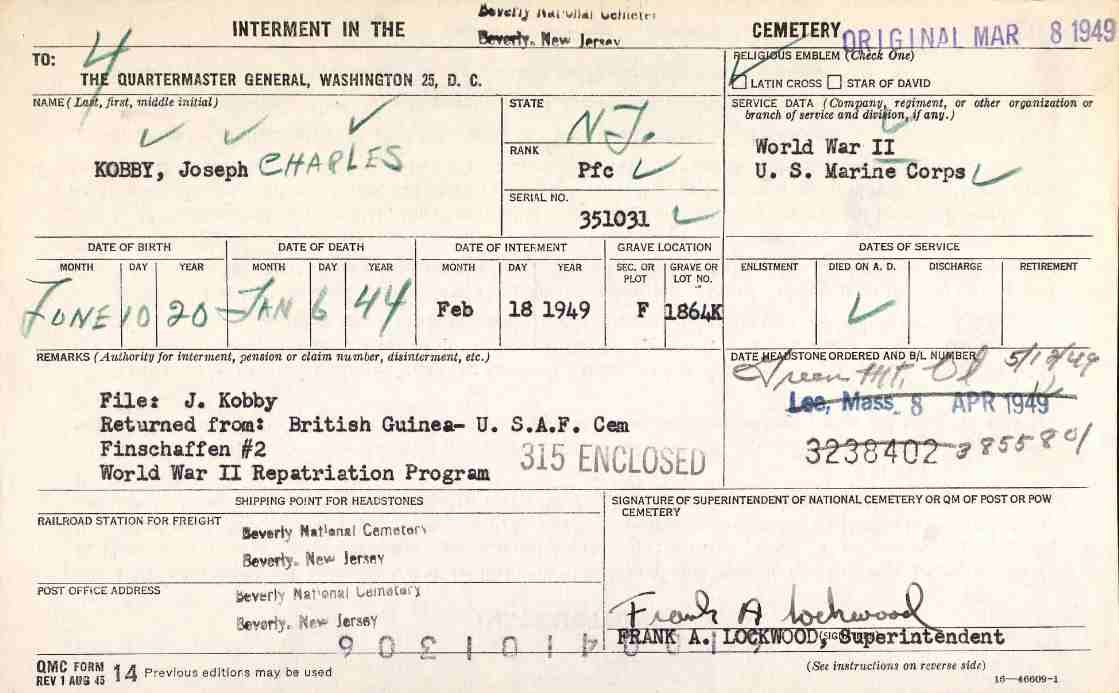 INTERMENT IN THE Beverly National Cemetery CEMETERY
Beverly, New Jersey
ORIGINAL MAR 8 1949
4
TO:
THE QUARTERMASTER GENERAL, WASHINGTON 25, D. C.
RELIGIOUS EMBLEM (Check One)
LATIN CROSS STAR OF DAVID
NAME (Last, first, middle initial)
KOBBY, Joseph CHARLES
STATE
N.J.
RANK
Pfc
SERIAL NO.
351031
SERVICE DATA (Company, regiment, or other organization or
branch of service and division, if any.)
World War II
U. S. Marine Corps
DATE OF BIRTH DATE OF DEATH DATE OF INTERMENT GRAVE LOCATION DATES OF SERVICE
MONTH DAY YEAR MONTH DAY YEAR MONTH DAY YEAR SEC. OR PLOT GRAVE OR LOT NO. ENLISTMENT DIED ON A. D. DISCHARGE RETIREMENT
JUNE 10 20 JAN 6 44 Feb 18 1949 F 1864K
REMARKS (Authority for interment, pension or claim number, disinterment, etc.)
File: J. Kobby
Returned from: British Guinea- U. S.A.F. Cem
Finschaffen #2
World War II Repatriation Program
315 ENCLOSED
DATE HEADSTONE ORDERED AND B/L NUMBER
5/12/49
Green Mt,
Lee, Mass. 8 APR 1949
3238402 3855801
SHIPPING POINT FOR HEADSTONES
RAILROAD STATION FOR FREIGHT
Beverly National Cemetery
Beverly, New Jersey
POST OFFICE ADDRESS
Beverly National Cemetery
Beverly, New Jersey
SIGNATURE OF SUPERINTENDENT OF NATIONAL CEMETERY OR QM OF POST OR POW
CEMETERY
Frank A Lockwood
FRANK A. LOCKWOOD, Superintendent
(See instructions on reverse side)
QMC FORM
REV 1 AUG 45 14 Previous editions may be used
16—46609-1